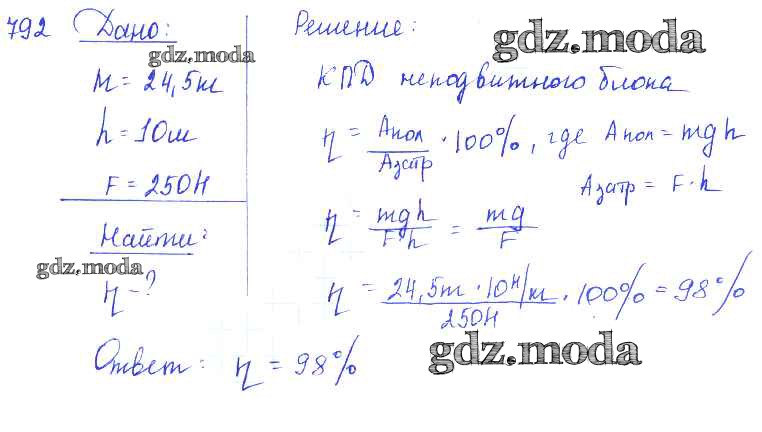 792 Дано:
gdz.moda
m = 24,5 кг
h = 10 м
F = 250 Н
Найти:
gdz.moda
η - ?
Решение:
gdz.moda
КПД неподвижного блока
η = Апол / Азатр · 100%, где Апол = mgh
Азатр = F · h
η = mgh / F·h = mg / F
η = 24,5 кг · 10 Н/кг / 250 Н · 100% = 98%
gdz.moda
Ответ: η = 98%